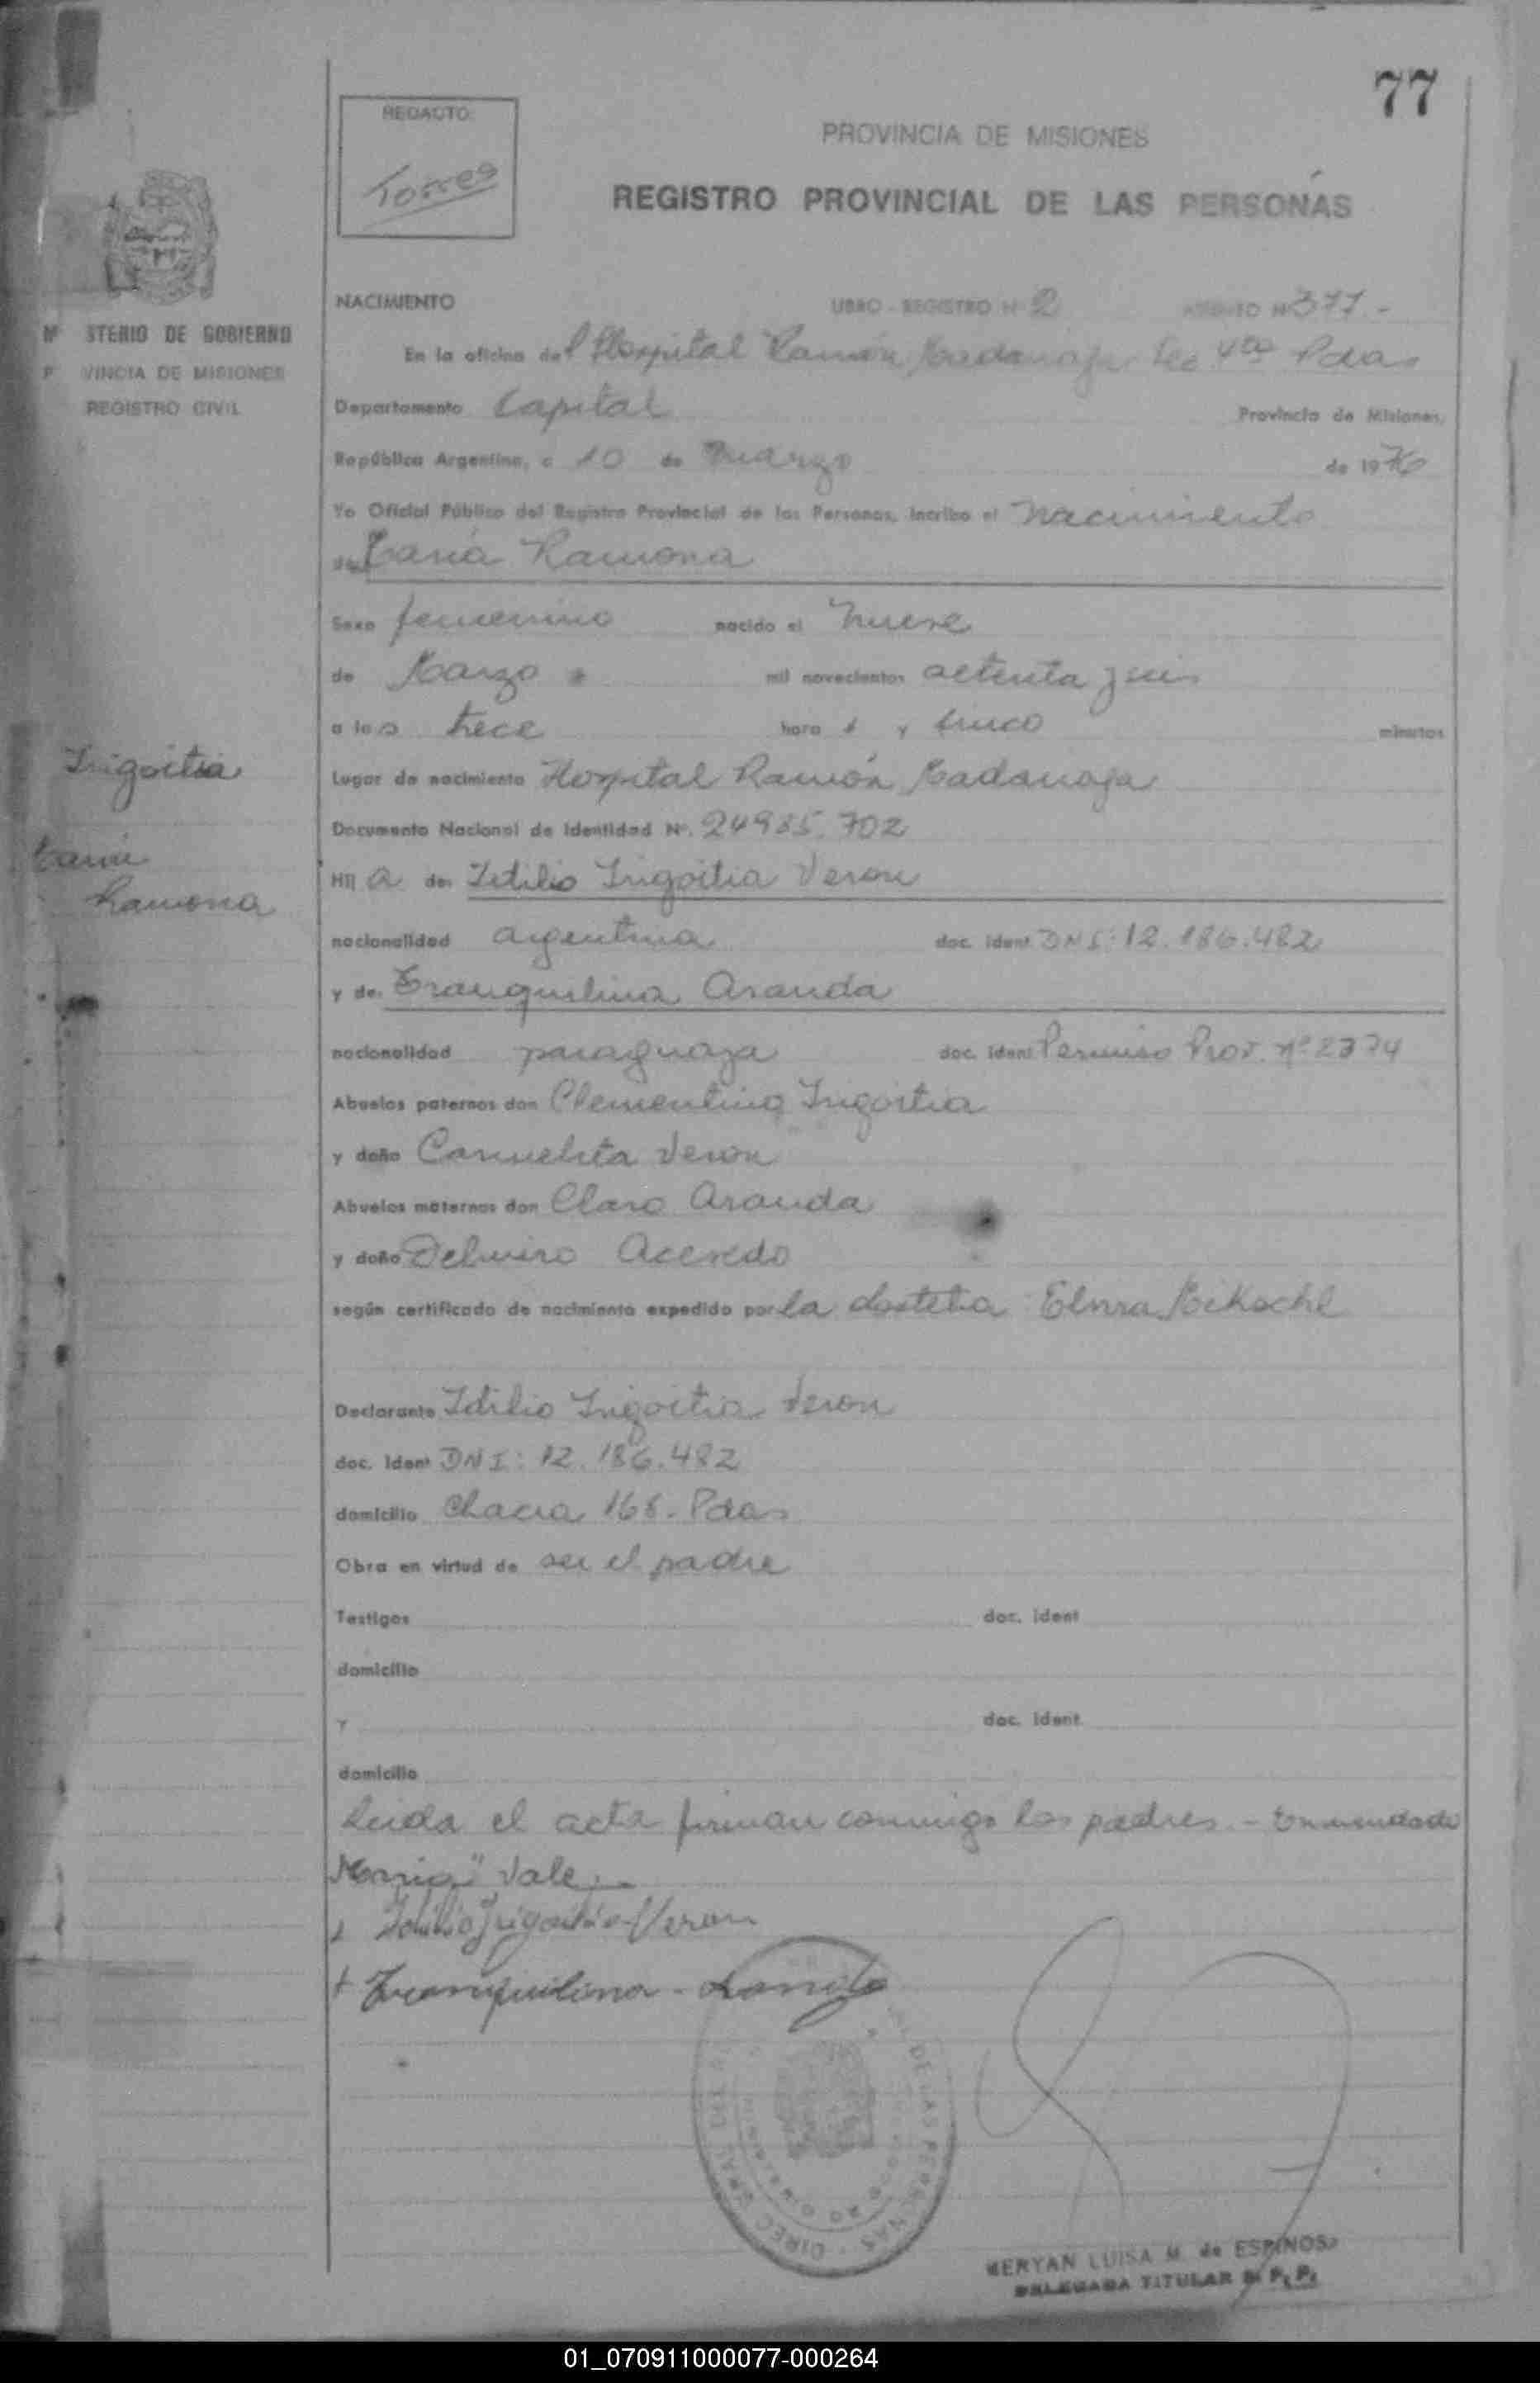 77
REDACTO:
Torres
PROVINCIA DE MISIONES
REGISTRO PROVINCIAL DE LAS PERSONAS
STERIO DE GOBIERNO
VINCIA DE MISIONES
REGISTRO CIVIL
NACIMIENTO LIBRO - REGISTRO Nº 2 Nº 377.-
En la oficina del Hospital Ramón Madariaga Sec 4ta Pdas
Departamento Capital Provincia de Misiones,
República Argentina, a 10 de Marzo de 1976
Yo Oficial Público del Registro Provincial de las Personas, incribo el nacimiento
de María Ramona
Sexo femenino nacido el nueve
de Marzo mil novecientos setenta y seis
a las trece hora s y cinco minutos
Lugar de nacimiento Hospital Ramón Madariaga
Documento Nacional de Identidad Nº. 24985.702
Hij a de: Idilio Irigoitia Veron
nacionalidad argentina doc. ident DNI: 12.186.482
y de: Tranquilina Aranda
nacionalidad paraguaya doc. ident Permiso Prov. nº 2374
Abuelos paternos don Clementino Irigoitia
y doña Carmelita Veron
Abuelos maternos don Claro Aranda
y doña Acevedo
según certificado de nacimiento expedido por la Elvira
Declarante Idilio Irigoitia Veron
doc. ident DNI: 12.186.482
domicilio Chacra 168. Pdas
Obra en virtud de ser el padre
Testigos doc. ident
domicilio
y doc. ident.
domicilio
Leída el acta firman conmigo los padres.- Enmendado
María" Vale.-
Idilio Irigoitia Veron
+ Tranquilina Aranda
Irigoitia
María
Ramona
LUISA M. de ESPINOSA
DELEGADA TITULAR R. P. P.
01_070911000077-000264